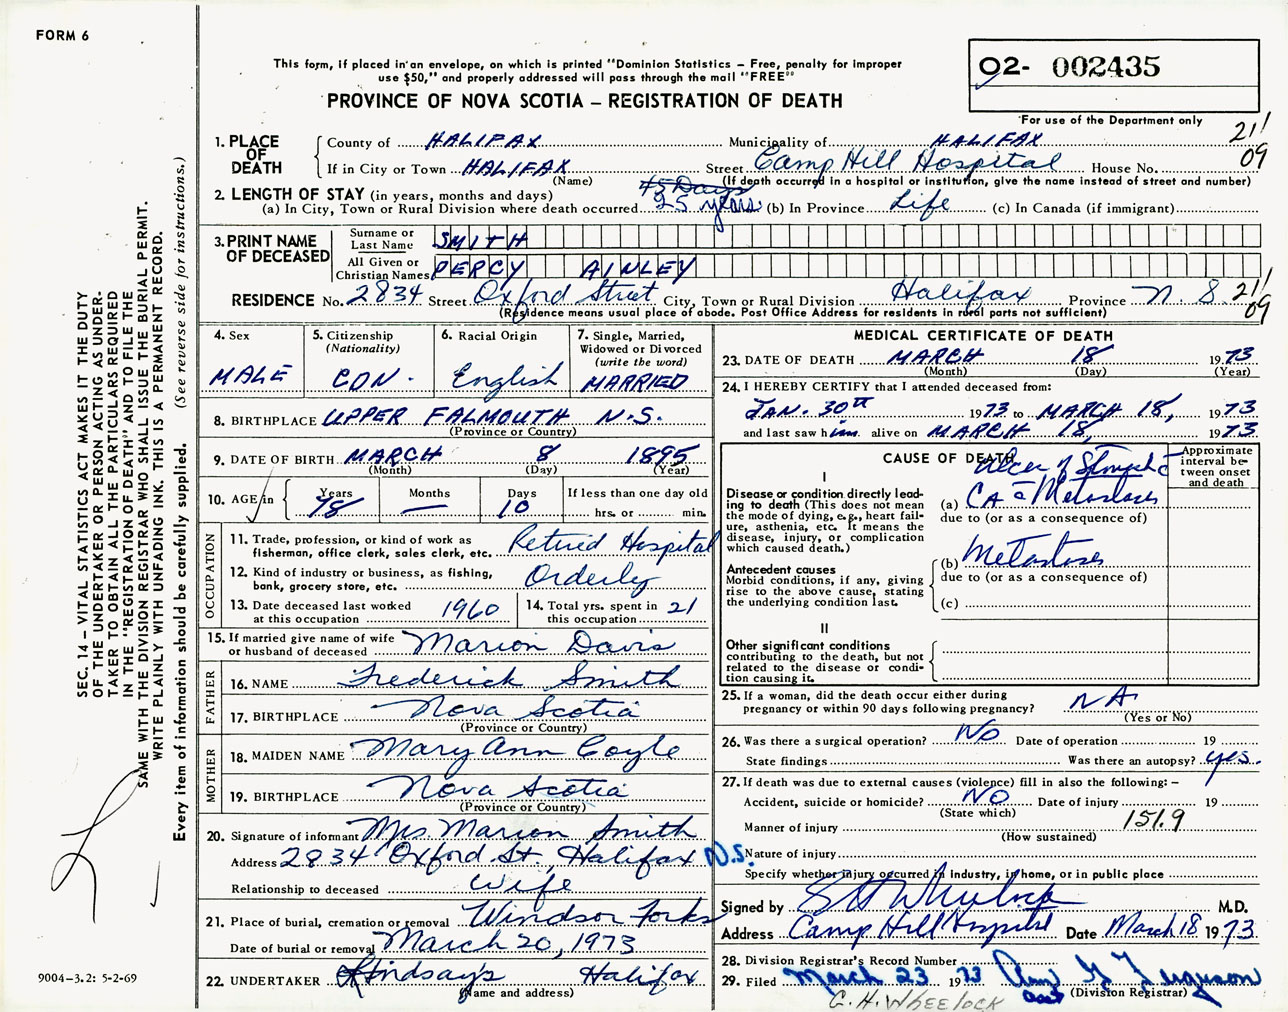 FORM 6
This form, if placed in an envelope, on which is printed "Dominion Statistics – Free, penalty for improper
use $50," and properly addressed will pass through the mail "FREE"
PROVINCE OF NOVA SCOTIA – REGISTRATION OF DEATH
02- 002435
For use of the Department only
21/
09
1. PLACE OF DEATH
County of HALIFAX Municipality of HALIFAX
If in City or Town HALIFAX Street Camp Hill Hospital House No.
(Name) (If death occurred in a hospital or institution, give the name instead of street and number)
2. LENGTH OF STAY (in years, months and days) 45 Days
(a) In City, Town or Rural Division where death occurred 25 years (b) In Province Life (c) In Canada (if immigrant)
3. PRINT NAME OF DECEASED
Surname or Last Name SMITH
All Given or Christian Names PERCY AINLEY
RESIDENCE No. 2834 Street Oxford Street City, Town or Rural Division Halifax Province N.S 21/
09
(Residence means usual place of abode. Post Office Address for residents in rural parts not sufficient)
4. Sex
MALE
5. Citizenship
(Nationality)
CDN.
6. Racial Origin
English
7. Single, Married,
Widowed or Divorced
(write the word)
MARRIED
8. BIRTHPLACE UPPER FALMOUTH N.S.
(Province or Country)
9. DATE OF BIRTH MARCH 8 1895
(Month) (Day) (Year)
10. AGE in Years Months Days If less than one day old
78 — 10 hrs. or min.
OCCUPATION
11. Trade, profession, or kind of work as
fisherman, office clerk, sales clerk, etc. Retired Hospital
12. Kind of industry or business, as fishing,
bank, grocery store, etc. Orderly
13. Date deceased last worked
at this occupation 1960
14. Total yrs. spent in
this occupation 21
15. If married give name of wife
or husband of deceased Marion Davis
FATHER
16. NAME Frederick Smith
17. BIRTHPLACE Nova Scotia
(Province or Country)
MOTHER
18. MAIDEN NAME Mary Ann Coyle
19. BIRTHPLACE Nova Scotia
(Province or Country)
20. Signature of informant Mrs Marion Smith
Address 2834 Oxford St., Halifax N.S.
Relationship to deceased wife
21. Place of burial, cremation or removal Windsor Forks
Date of burial or removal March 20, 1973
22. UNDERTAKER Lindsay's Halifax
(Name and address)
MEDICAL CERTIFICATE OF DEATH
23. DATE OF DEATH MARCH 18 1973
(Month) (Day) (Year)
24. I HEREBY CERTIFY that I attended deceased from:
JAN. 30th 1973 to MARCH 18, 1973
and last saw him alive on MARCH 18, 1973
CAUSE OF DEATH
Approximate
interval be-
tween onset
and death
I
Disease or condition directly lead-
ing to death (This does not mean
the mode of dying, e.g., heart fail-
ure, asthenia, etc. It means the
disease, injury, or complication
which caused death.)
Ulcer of Stomach c
(a) CA c Metastases
due to (or as a consequence of)
(b) Metastases
due to (or as a consequence of)
(c)
Antecedent causes
Morbid conditions, if any, giving
rise to the above cause, stating
the underlying condition last.
II
Other significant conditions
contributing to the death, but not
related to the disease or condi-
tion causing it.
25. If a woman, did the death occur either during
pregnancy or within 90 days following pregnancy? NA
(Yes or No)
26. Was there a surgical operation? No Date of operation 19
State findings Was there an autopsy? yes.
27. If death was due to external causes (violence) fill in also the following: –
Accident, suicide or homicide? NO Date of injury 19
(State which)
Manner of injury 151.9
(How sustained)
Nature of injury
Specify whether injury occurred in industry, in home, or in public place
Signed by G H Wheelock M.D.
Address Camp Hill Hospital Date March 18 1973
28. Division Registrar's Record Number
29. Filed March 23 1973 Ann G Ferguson
(Division Registrar)
G. H. WHEELOCK
SEC. 14 – VITAL STATISTICS ACT MAKES IT THE DUTY
OF THE UNDERTAKER OR PERSON ACTING AS UNDER-
TAKER TO OBTAIN ALL THE PARTICULARS REQUIRED
IN THE "REGISTRATION OF DEATH" AND TO FILE THE
SAME WITH THE DIVISION REGISTRAR WHO SHALL ISSUE THE BURIAL PERMIT.
WRITE PLAINLY WITH UNFADING INK. THIS IS A PERMANENT RECORD.
Every item of information should be carefully supplied. (See reverse side for instructions.)
9004–3.2: 5-2-69